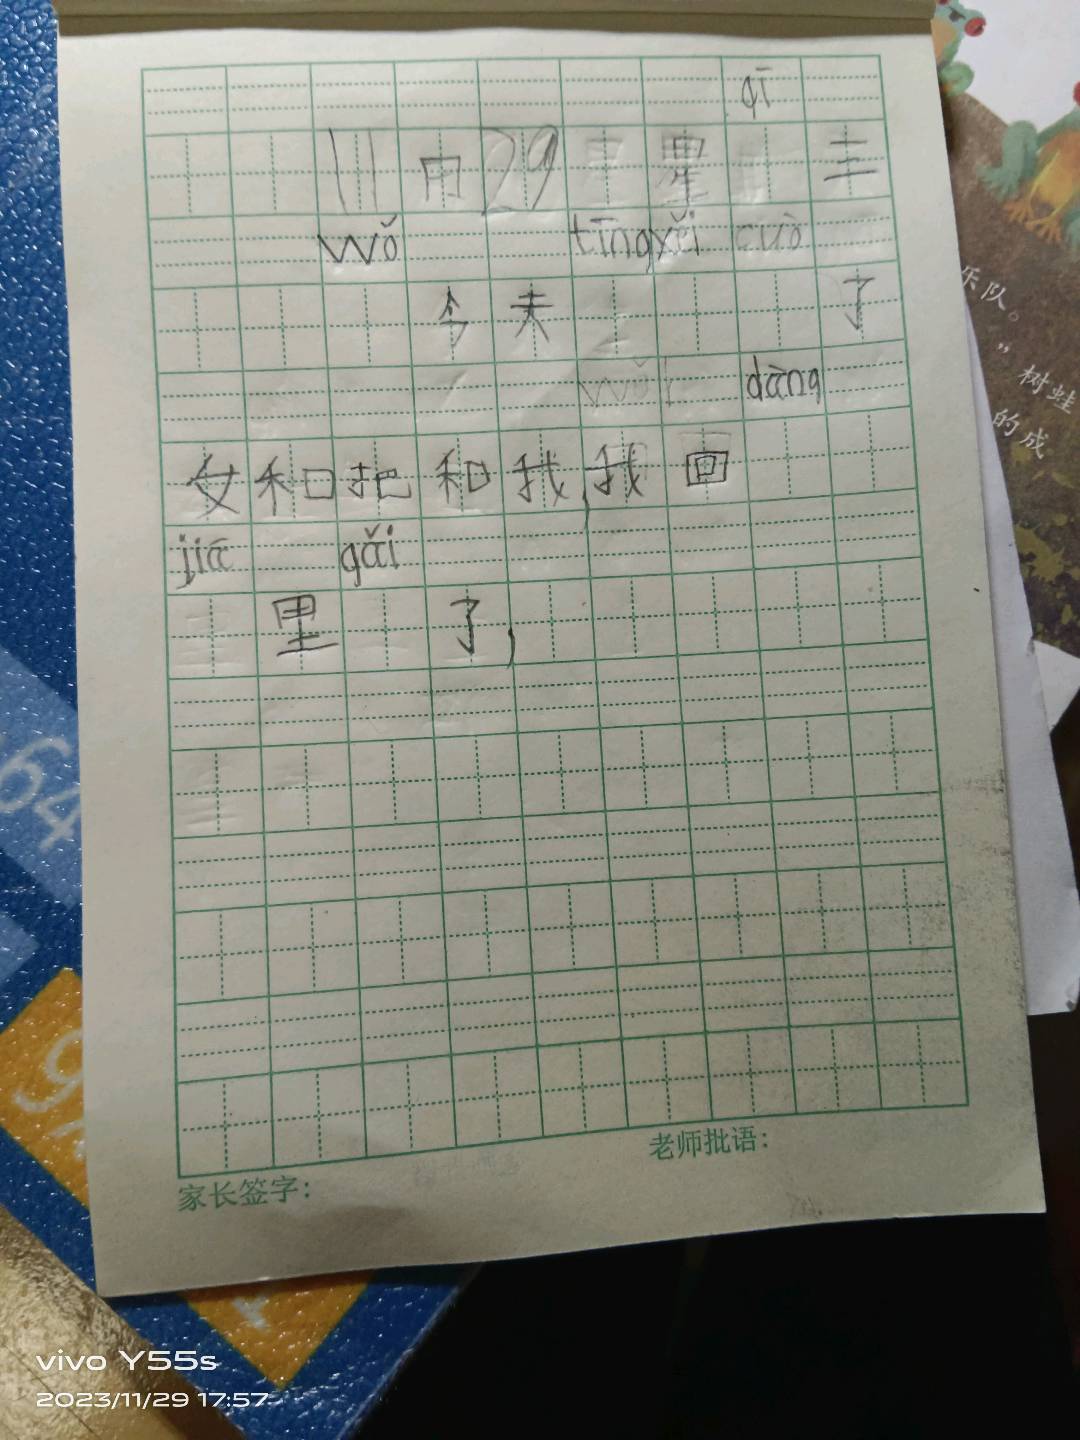 qī
11月29 星 三
wǒ tīngxěi cuò
今天 了
wǒ dāng
女和把和我,我回
jiā gǎi
里 了,
家长签字:
老师批语:
乐队。
”
树蛙
的成
64
vivo Y55s
2023/11/29 17:57